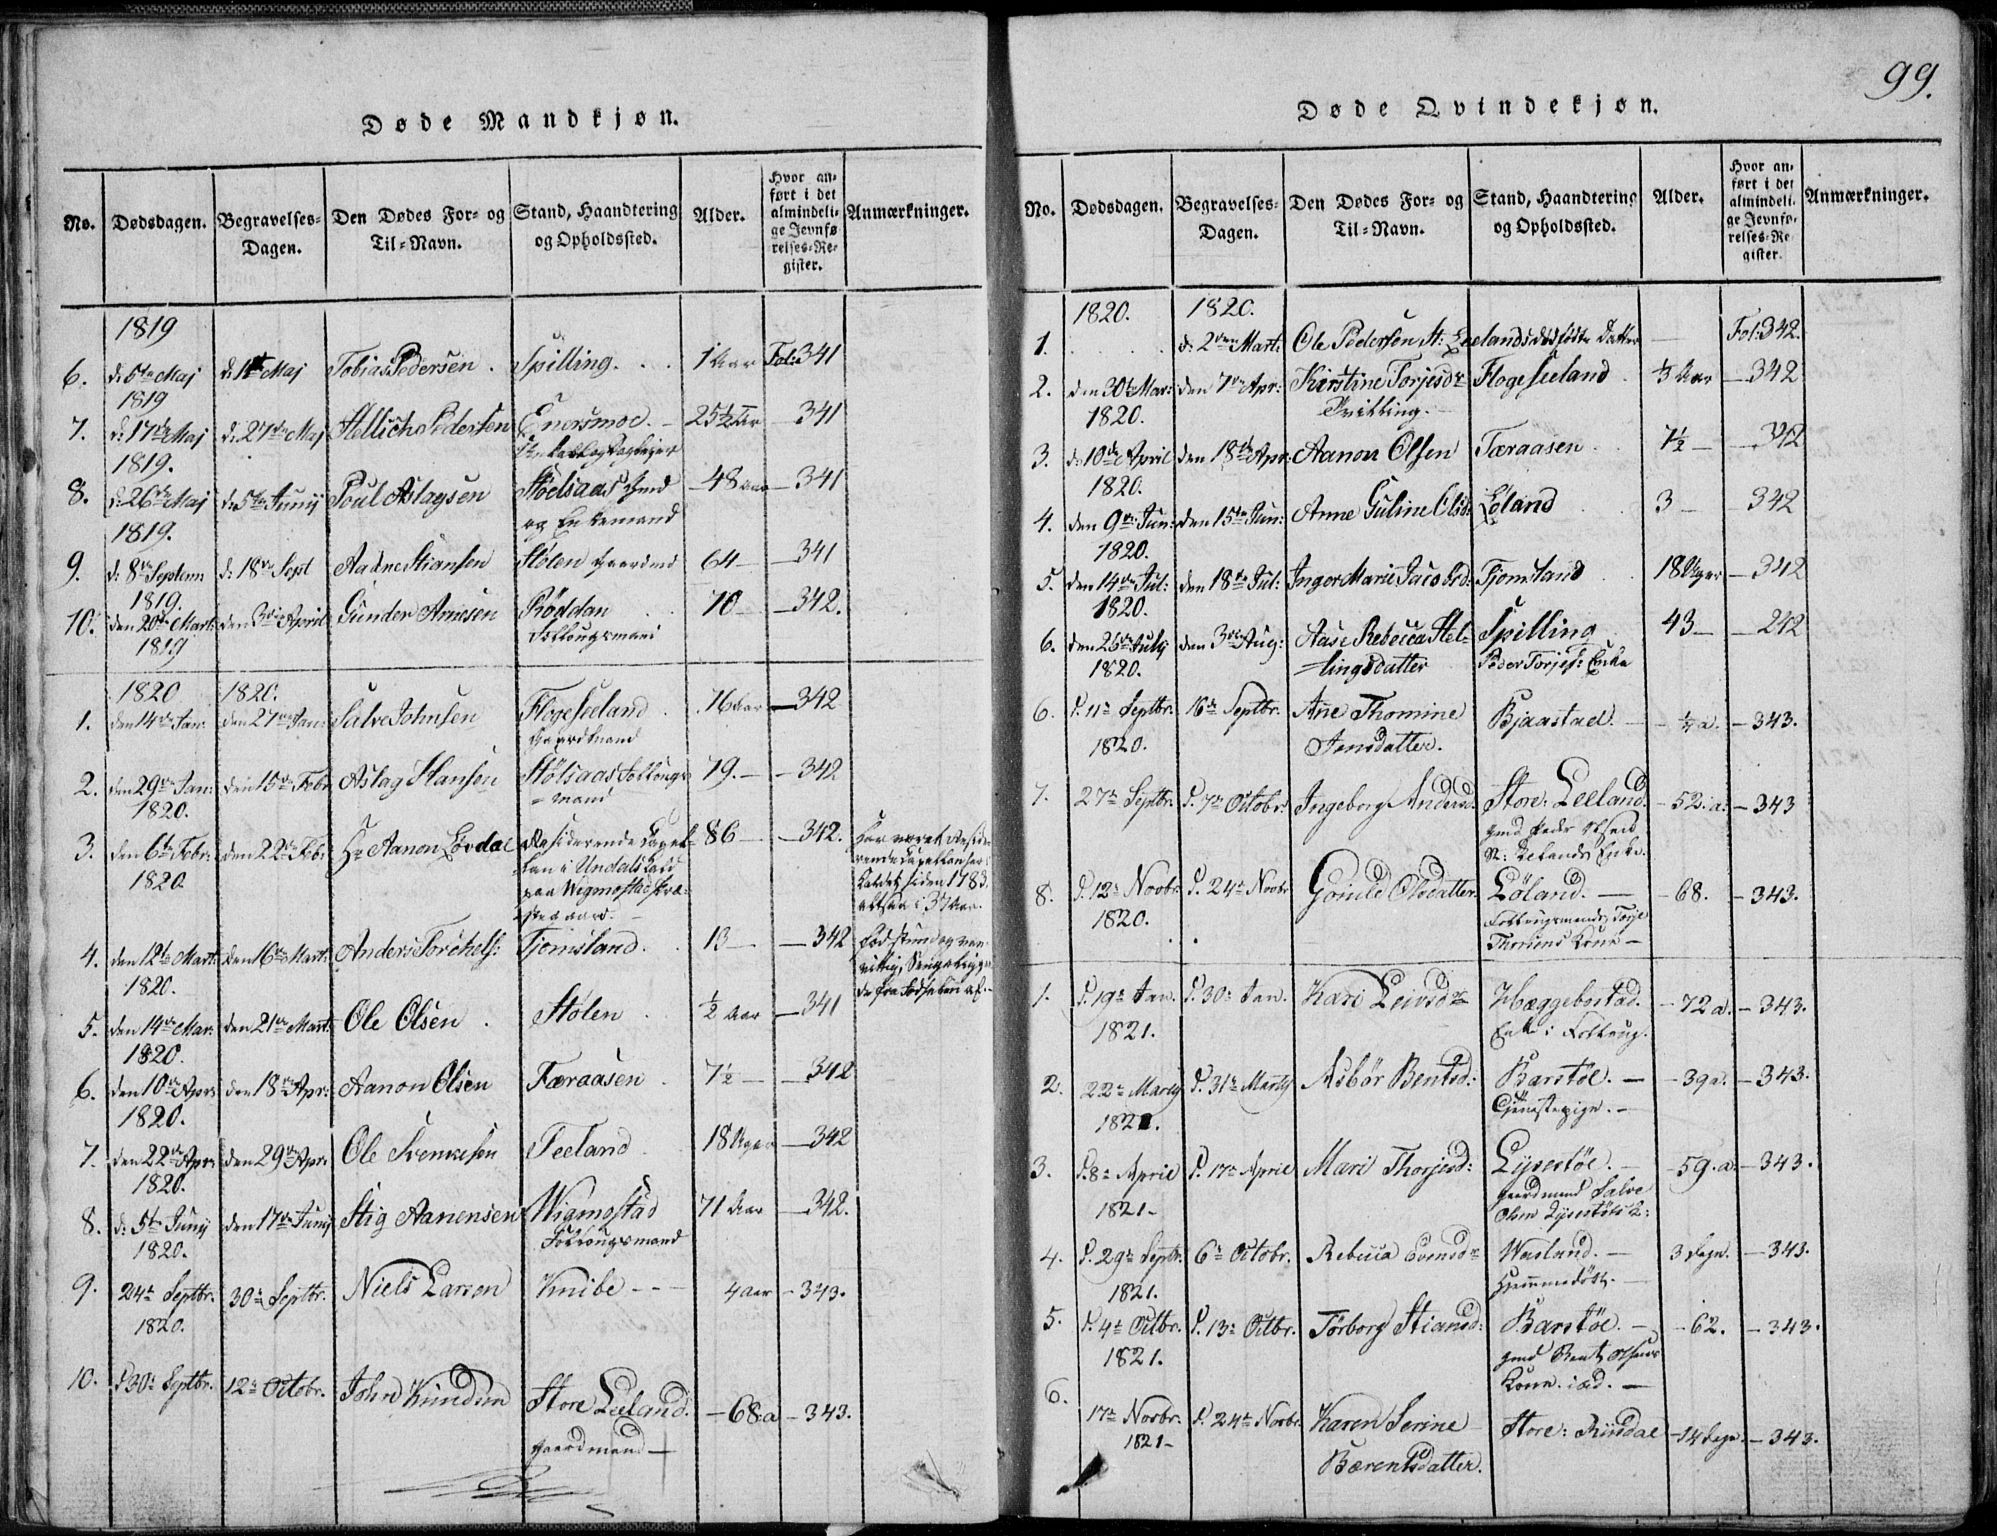 99.
Døde Mandkjøn.
No. Dødsdagen. Begravelses-Dagen. Den Dødes For- og Til-Navn. Stand, Haandtering og Opholdssted. Alder. Hvor anført i det almindelige Jevnførelses-Register. Anmærkninger.
1819
6. d: 6te Maj d: Maj Tobias Pedersen. Spilling. 1 Aar Fol: 341
1819
7. d: 17de Maj d: 27de Maj Pedersen Enersmoe. 25½ Aar 341
1819.
8. d: 26de Maj d: 5te Junij Poul Aslagsen 48 Aar 341
og Enkemand
1819.
9. d: 8de Septem d: 18de Sept Aadne Stiansen Stølen Gaardmd 64 341
1819.
10. den 20de Mart: den 3die April Gunder Arnesen Røddan 70 342.
1819
1820 1820.
1. den 14de Jan: den 27de Jan: Salve Johnsen Flogeseeland 76 Aar 342
Gaardmand
2. den 29de Jan: den 10de Febr Aslag Hansen Stølsaas Follougs= 79. 342
=mand
1820.
3. den 6te Febr: den 22de Feb: Hr Aanon Løvdal Residerende Capel= 86 342. Har været Reside
lan i Undals Kald rende Capellan her i
1820. paa Wigmostad Præ= Kaldet siden 1783.
stegaard. altsaa i 37 Aar.
4. den 12te Mart: den 16de Mart: Anders Torchels: Tjomsland. 13 342
1820.
5. den 14de Mar: den 21de Mart: Ole Olsen Stølen ½ Aar 341
1820.
6. den 10de Apr: den 18de Apr: Aanon Olsen Færaasen 7½ 342
1820.
7. den 22de Apr: den 29de Apr: Ole Svennesen Feeland 18 Uger 342
1820.
8. d: 5te Junij den 17de Junij Stig Aanensen Wigmostad 71 Aar 342.
Follougsmand
1820.
9. 24de Septbr. 30te Septbr. Niels Larsen Knibe 4 Aar 343.
1820.
10. d. 30te Septbr. 12te Octobr. John Knudsen Store Leeland. 68. a 343.
Gaardmand
Døde Qvindekjøn.
No. Dødsdagen. Begravelses-Dagen. Den Dødes For- og Til-Navn. Stand, Haandtering og Opholdssted. Alder. Hvor anført i det almindelige Jevnførelses-Register. Anmærkninger.
1820. 1820.
1. d: 2den Mart: Ole Pedersen St: Leelands dødfødte Datter Fol: 342.
2. den 30te Mar: den 7de Apr: Kirstine Torjesdr Flogeseeland ⅓ Aar 342
1820. Tvilling.
3. d: 10de April den 18de Apr: Aanon Olsen Færaasen 7½ 342
1820.
4. den 9de Jun: den 15de Jun: Anne Guline Olsd: Løland 3 342
1820.
5. den 14de Jul: den 18de Jul: Inger Marie Jacobsd: Tjomsland 18 Uger 342
1820.
6. den 26de July den 3die Aug: Aase Rebecca Hel= Spilling 43 242
1820. =lingsdatter Peder Torjes: Enke
6. d. 11te Septbr. 16de Septbr. Ane Thomine Bjaastad. ¼ a. 343.
1820. Jensdatter.
7. 27de Septbr. d. 7de Octobr. Ingeborg Andersd. Store: Leeland. 52. a. 343
gmd Peder Olsen
8. d. 12te Novbr. d. 24de Novbr. Gunild Olsdatter. Løland. 68. 343.
1820. Follougsmand Torje
Thorsens Kone
1. d. 19de Jan. d. 30te Jan. Kari Leivsdr Hæggebostad. 72 a. 343.
1821. Enke i Folloug.
2. 22de Martj d. 31te Martij Asbør Bentsd: Barstøe. 39 a. 343.
1821. Tjenestepige.
3. d. 8de April d. 17de April Mari Thorjesd: Lyserstøe. 59. a. 343.
1821. gaardmand Salve
Olsen Lyserstøes K:
4. d. 29de Septbr. 6te Octobr. Rebecca Evensdr Wasland. 3 Dage. 343.
1821. Hjemmedøbt.
5. d. 4de Octbr. d. 13de Octbr. Torborg Stiansd: Barstøe. 62. 343.
1821. gmd Bent Olsens
Kone.
6. 17de Novbr. d. 24de Novbr. Karen Serine Store: Riisdal 14 Dage. 343.
1821. Bærentsdatter.